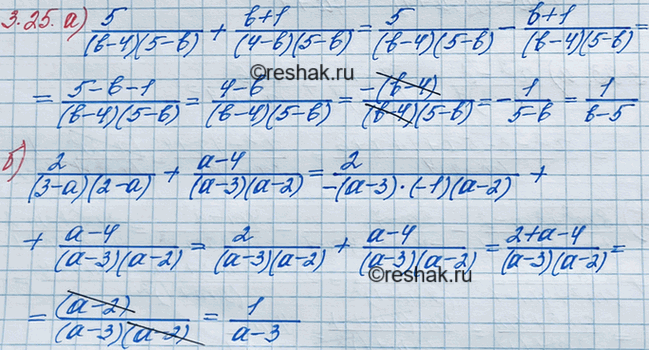 3.25. а) 5/((в-4)(5-в)) + (в+1)/((4-в)(5-в)) = 5/((в-4)(5-в)) - (в+1)/((в-4)(5-в)) =
©reshak.ru
= (5-в-1)/((в-4)(5-в)) = (4-в)/((в-4)(5-в)) = -(в-4)/((в-4)(5-в)) = -1/(5-в) = 1/(в-5)
б) 2/((3-а)(2-а)) + (а-4)/((а-3)(а-2)) = 2/(-(а-3)·(-1)(а-2)) +
+ (а-4)/((а-3)(а-2)) = 2/((а-3)(а-2)) + (а-4)/((а-3)(а-2)) = (2+а-4)/((а-3)(а-2)) =
©reshak.ru
= (а-2)/((а-3)(а-2)) = 1/(а-3)